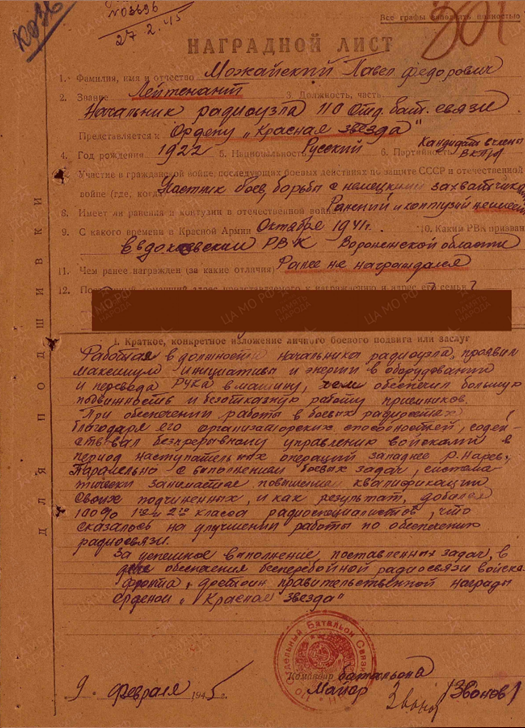 №03696
27 2.45
Все графы заполнять полностью
НАГРАДНОЙ ЛИСТ
1. Фамилия, имя и отчество Можайский Павел Федорович
2. Звание Лейтенант 3. Должность, часть
Начальник радиоузла 110 Отд. бат. связи
Представляется к Ордену „Красная звезда"
4. Год рождения 1922 5. Национальность Русский 6. Партийность Кандидат в члены
ВКП/б
7. Участие в гражданской войне, последующих боевых действиях по защите СССР и отечественной
войне (где, когда) Участник боев, борьбы с немецкими захватчиками
8. Имеет ли ранения и контузии в отечественной войне Ранений и контузий не имеет
9. С какого времени в Красной Армии Октября 1941г. 10. Каким РВК призван
РВК Воронежской области
11. Чем ранее награжден (за какие отличия) Ранее не награждался
12.
I. Краткое, конкретное изложение личного боевого подвига или заслуг
Работая в должности начальника радиоузла, проявил
максимум инициативы и энергии в оборудовании
и перевода РУКа в машину, чем обеспечил большую
подвижность и безотказную работу приемников.
При обеспечении работа в боевых радиосетях
благодаря его организаторских способностей, содей-
ствовал безпрерывному управлению войсками в
период наступательных операций западнее р. Нарев.
Паралельно с выполнением боевых задач, система
тически занимается повышением квалификации
своих подчиненных, и как результат, добился
100% 1го и 2го класса радиоспециалистов, что
сказалось на улучшении работы по обеспечению
радиосвязи.
За успешное выполнение поставленных задач, в
деле обеспечения бесперебойной радиосвязи войск
фронта, достоин правительственной награды
орденом „Красная звезда"
Командир батальона
Майор Звонов /Звонов/
9. февраля 1945г.
ДЛЯ ПОДШИВКИ